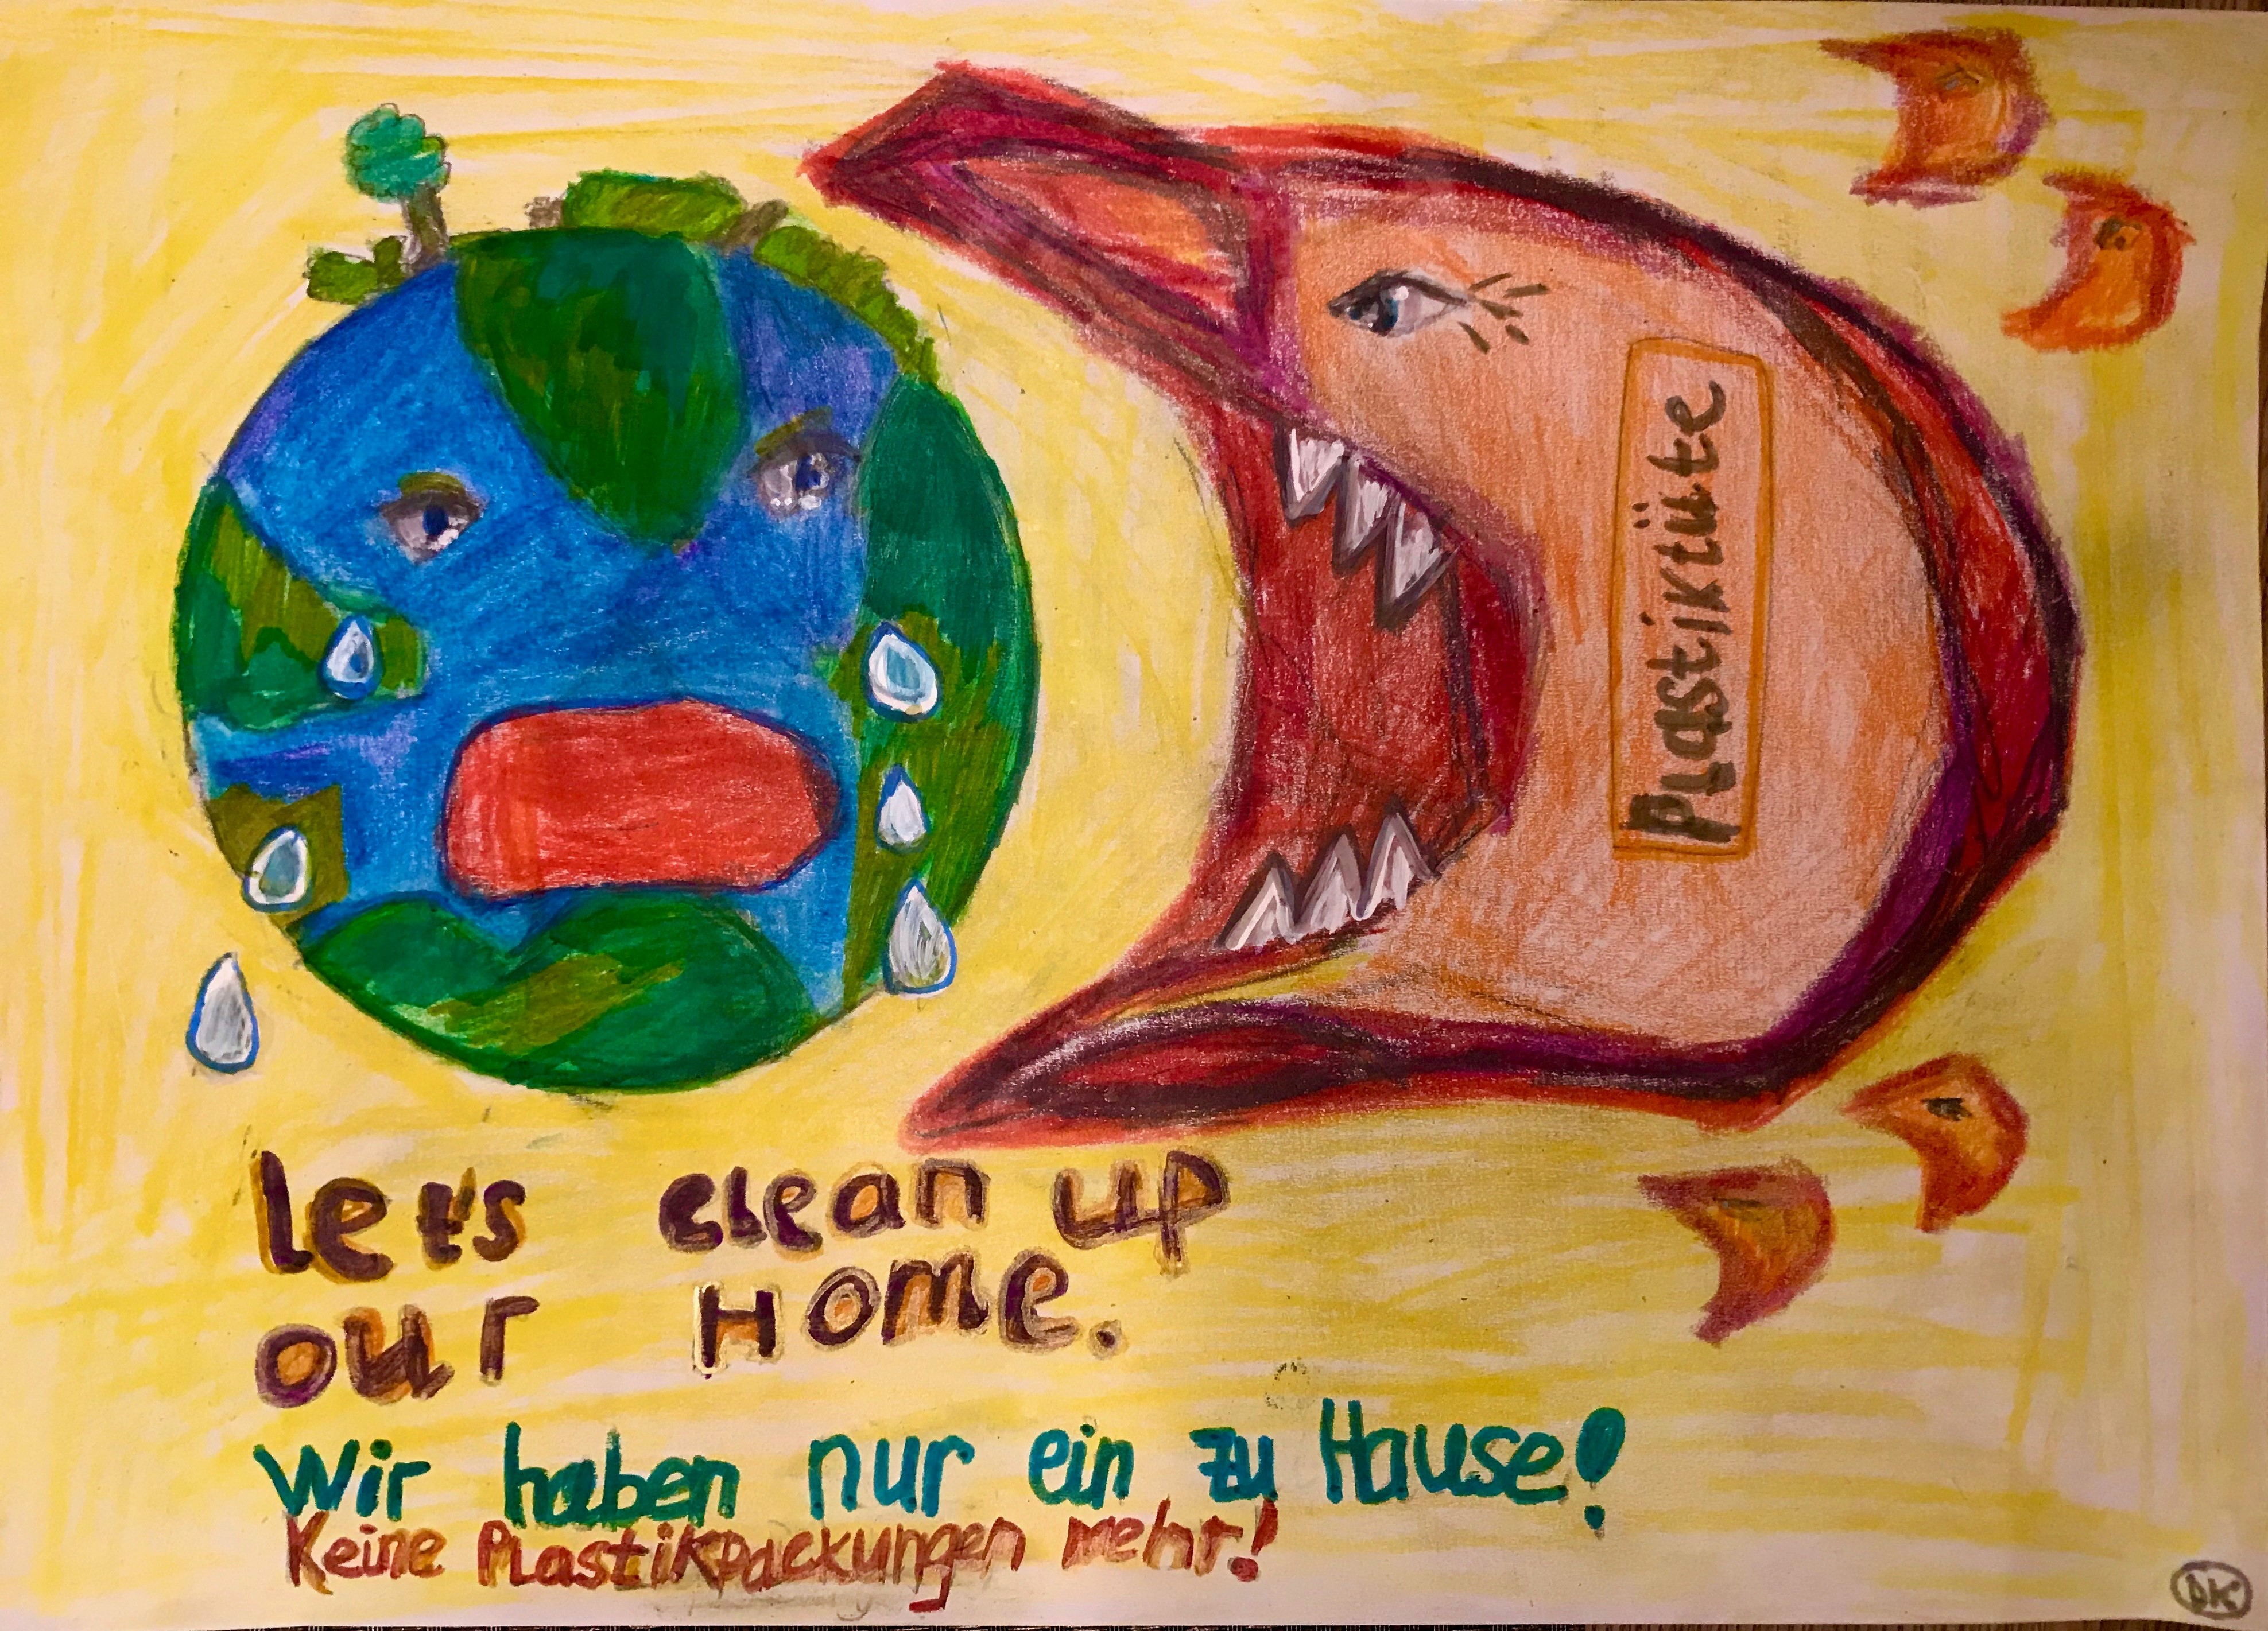 Plastiktüte
Let's clean up
our Home.
Wir haben nur ein zu Hause!
Keine Plastikpackungen mehr!
DK